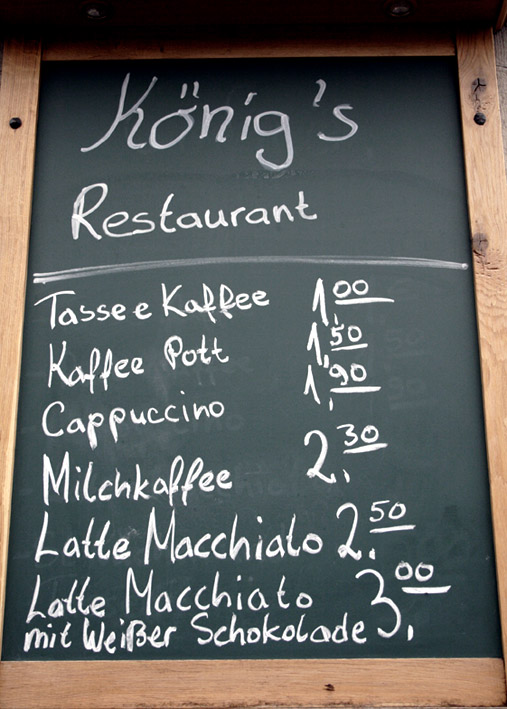 König's
Restaurant
Tasse e Kaffee 1,00
Kaffee Pott 1,50
Cappuccino 1,90
Milchkaffee 2,30
Latte Macchiato 2,50
Latte Macchiato
mit Weißer Schokolade 3,00